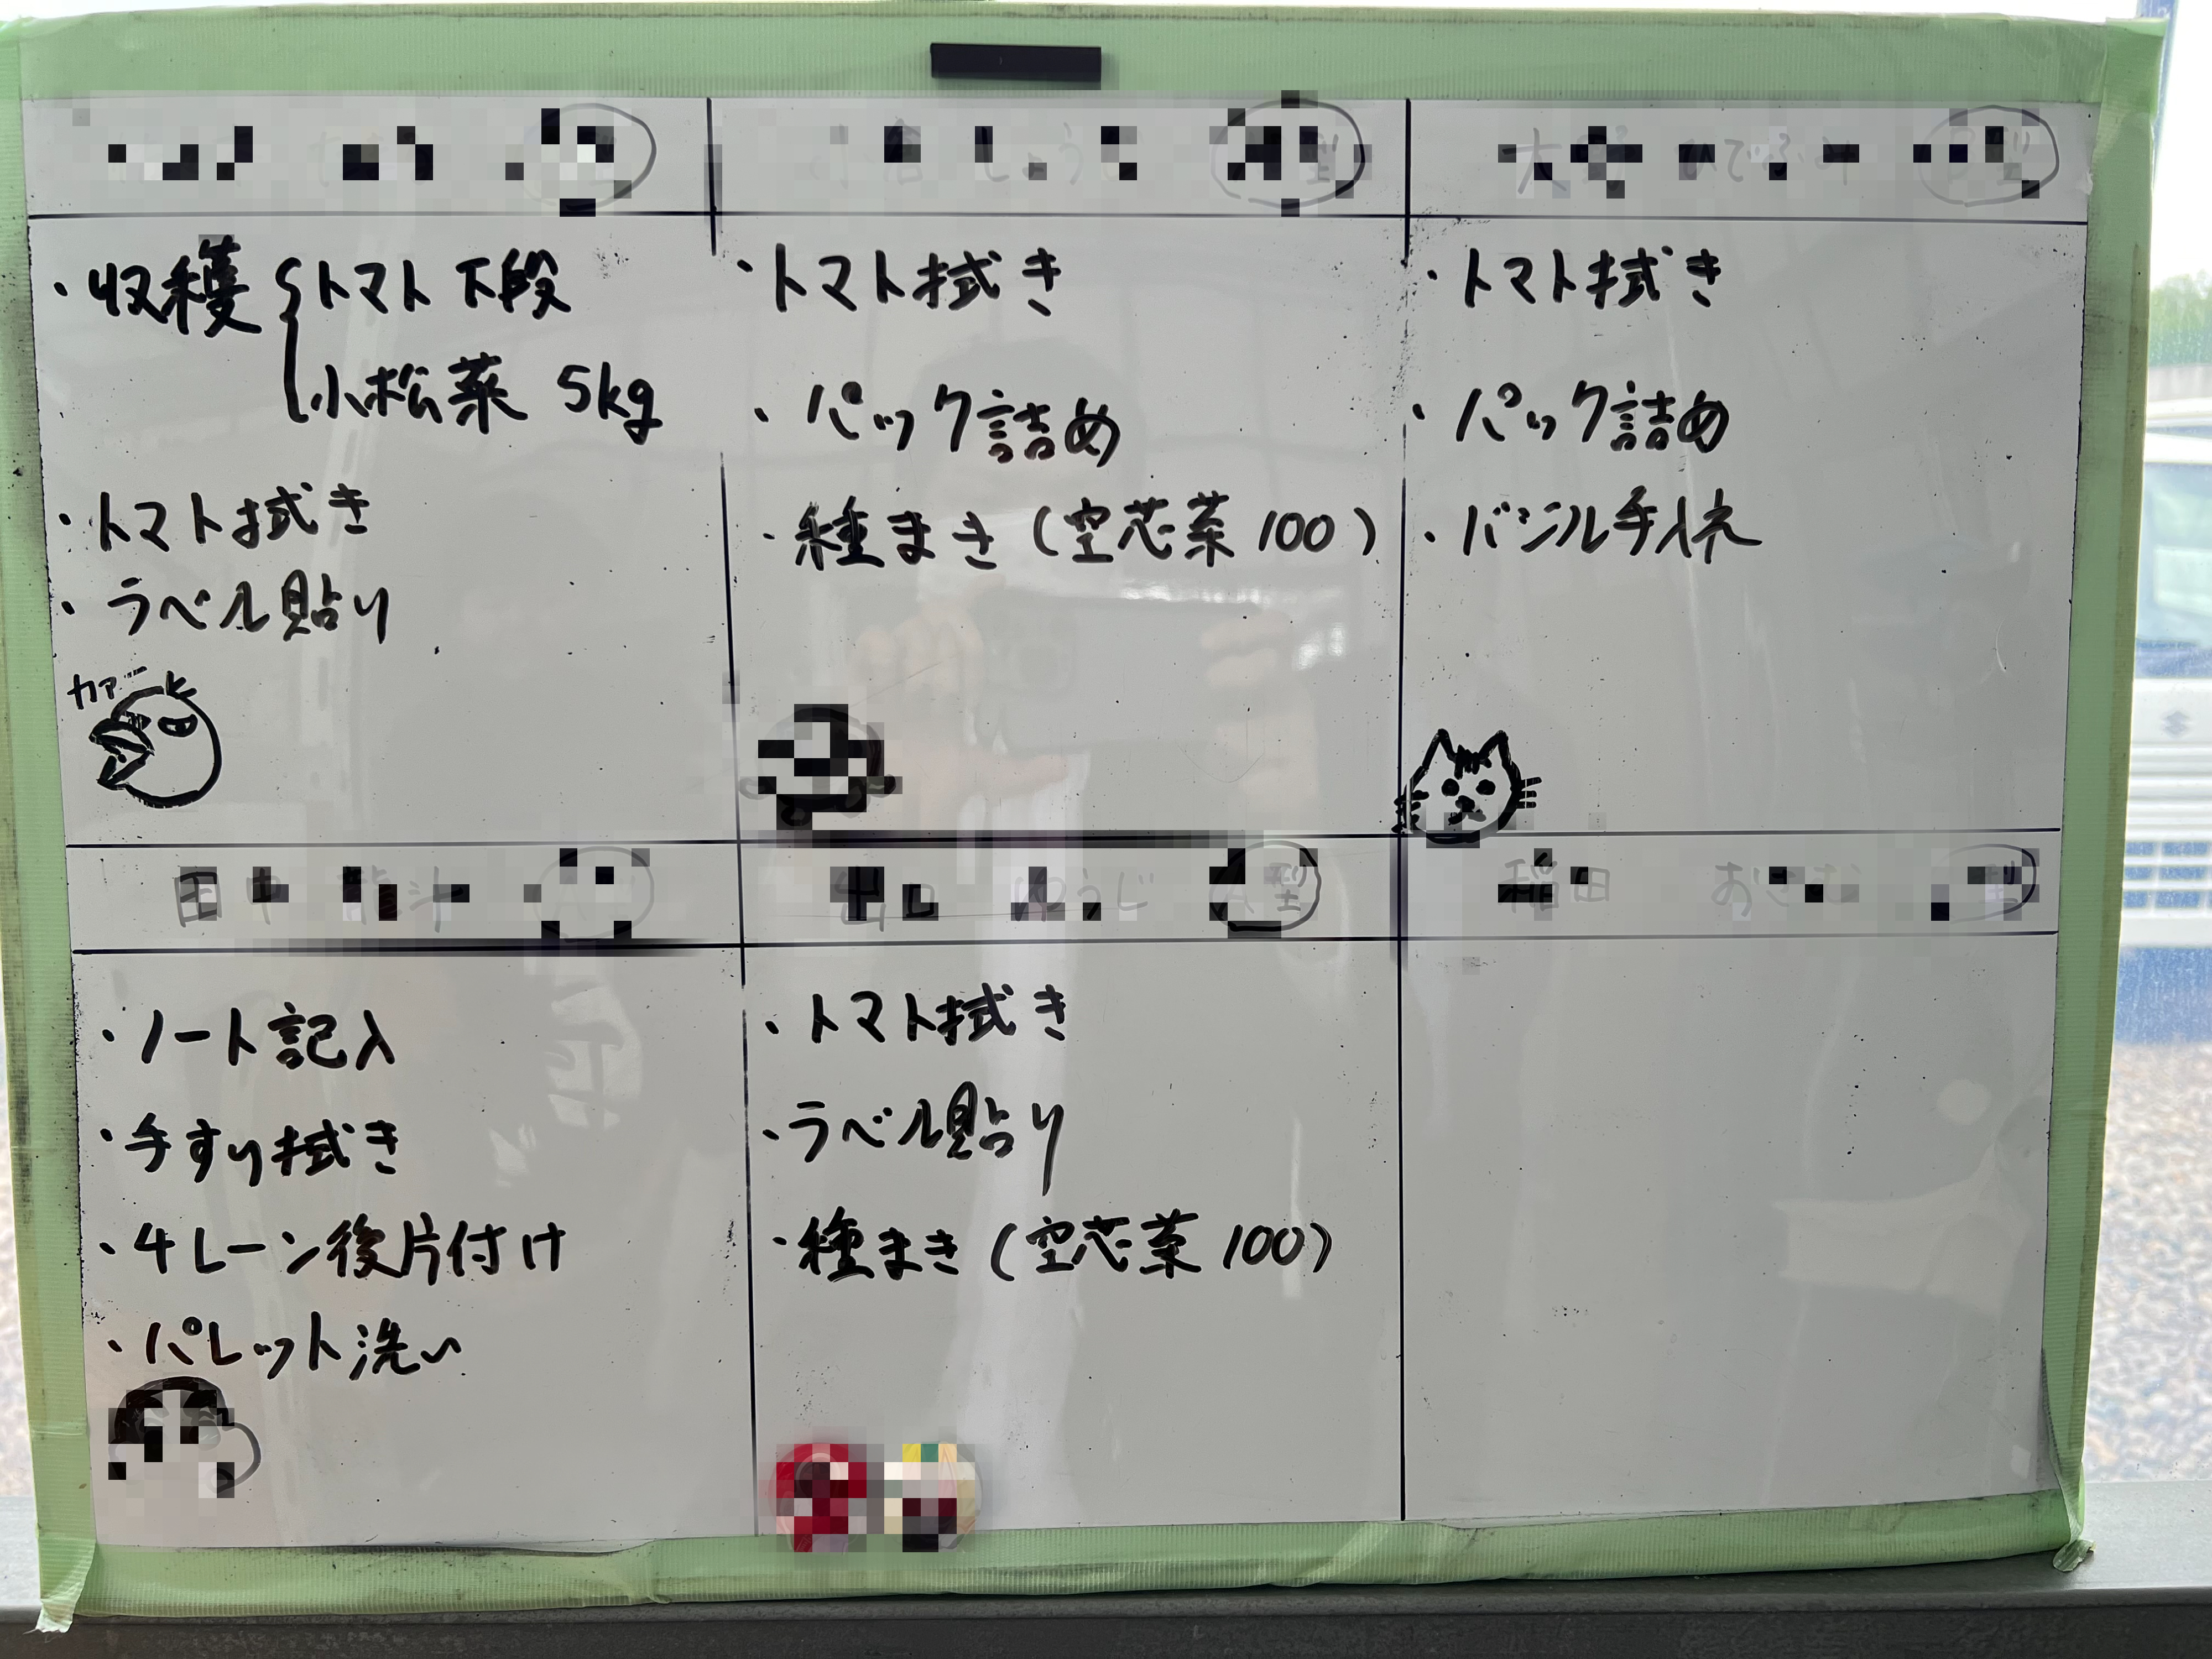 ・収穫 { トマト 下段
小松菜 5kg
・トマト拭き
・ラベル貼り
カァー
・トマト拭き
・パック詰め
・種まき (空芯菜 100)
・トマト拭き
・パック詰め
・バジル手入れ
・ノート記入
・手すり拭き
・4レーン後片付け
・パレット洗い
・トマト拭き
・ラベル貼り
・種まき (空芯菜 100)